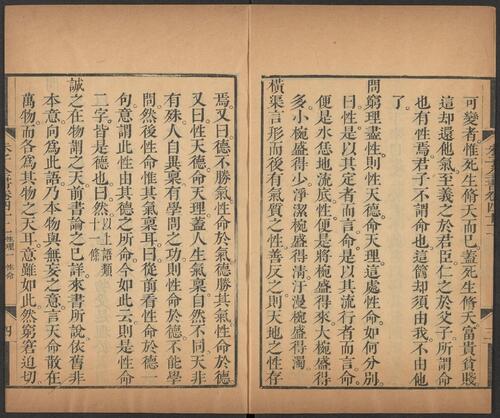 可變者惟死生脩夭而已蓋死生脩夭富貴貧賤
這却還他氣至義之於君臣仁之於父子所謂命
也有性焉君子不謂命也這箇却須由我不由他
了
問窮理盡性則性天德命天理這處性命如何分别
曰性是以其定者而言命是以其流行者而言命
便是水恁地流底性便是將椀盛得來大椀盛得
多小椀盛得少淨潔椀盛得清汙漫椀盛得濁
橫渠言形而後有氣質之性善反之則天地之性存
焉又曰德不勝氣性命於氣德勝其氣性命於德
又曰性天德命天理蓋人生氣禀自然不同天非
有殊人自異禀有學問之功則性命於德不能學
問然後性命惟其氣禀耳曰從前看性命於德一
句意謂此性由其德之所命今如此云則是性命
二字皆是德也曰然以上語類十一條
誠之在物謂之天前書論之已詳來書所說依舊非
本意向爲此語乃本物與無妄之意言天命散在
萬物而各爲其物之天耳意雖如此然窮窘迫切
性理一
性命
四